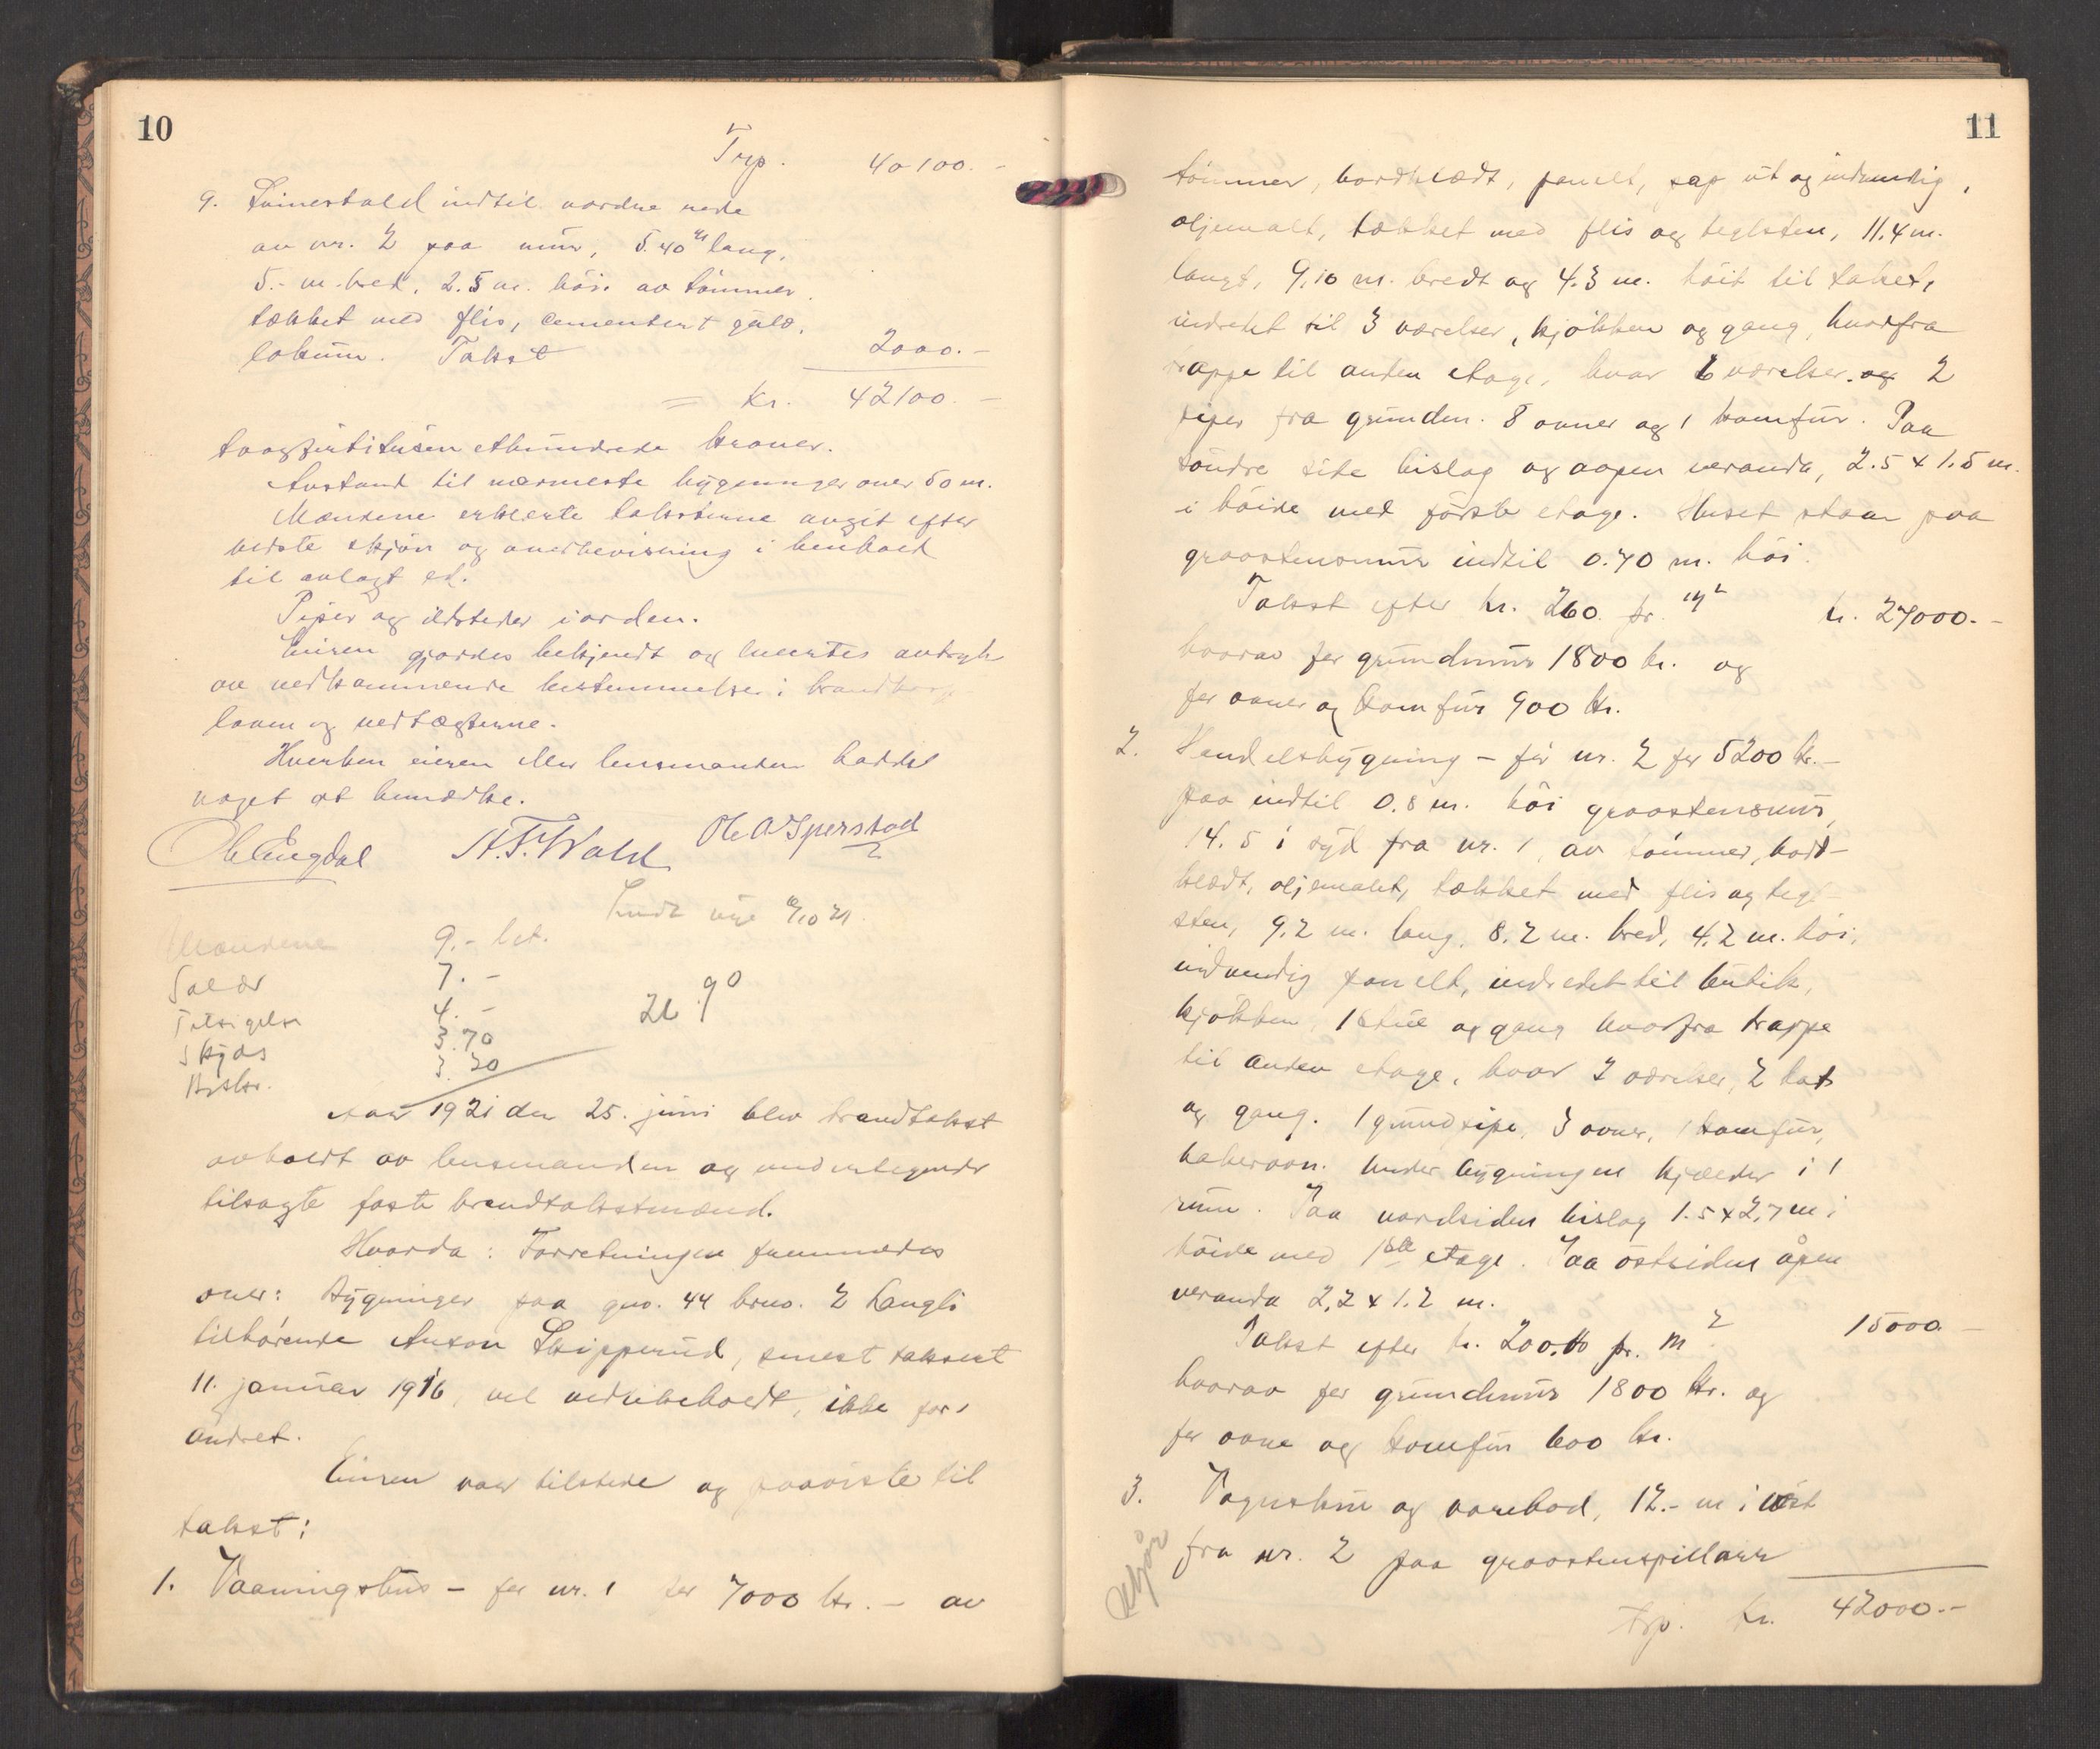 10
Trp. 40100.-
9. Svinestald indtil nordre ende
av nr. 2 paa mur, 5.40 m lang,
5.- m. bred, 2.5 m. höi av tömmer
tækket med flis, cementert gulv,
lokum. Takst 2000.-
= Kr. 42100.-
toogförtitusen ethundrede kroner.
Avstand til nærmeste bygninger over 50 m.
Mændene erklærte taksterne avgit efter
bedste skjön og overbevisning i henhold
til avlagt ed.
Piper og ildsteder i orden.
Eieren gjordes bekjendt og levertes avtryk
av vedkommende bestemmelser i brand
loven og vedtægterne.
Hverken eieren eller lensmanden hadde
noget at bemerke.
Ole Engdal H.T. Wold Ole A Sperstad
Sendt 10/10 21
Mændene 9.- bet.
Salær 7.-
Tilsigelse 4.-
Skyds 3.70
Utskr. 3.20
26.90
Aar 1921 den 25. juni blev brandtakst
avholdt av lensmanden og undertegnede
tilsagte faste brandtakstmænd.
Hvorda: Forretningen fremmedes
over: Bygninger paa gno. 44 brno. 2 Langli
tilhörende Anton Skipperud, senest taksert
11. januar 1916, vel vedlikeholdt, ikke for-
andret.
Eieren var tilstede og paaviste til
takst:
1. Vaaningshus - för nr. 1 for 7000 kr. - av
11
tömmer, bordklædt, panelt, pap ut og indvendig,
oljemalt, tækket med flis og teglsten, 11.4 m.
langt, 9,10 m. bredt og 4.3 m. höit til taket,
indredet til 3 værelser, kjökken og gang, hvorfra
trappe til anden etage, hvor 6 værelser. og 2
piper fra grunden. 8 ovner og 1 komfur. Paa
söndre side bislag og aapen veranda, 2.5 x 1.5 m.
i höide med förste etage. Huset staar paa
graastensmur indtil 0.70 m. höi.
Takst efter kr. 260 pr. m² kr. 27000.-
hvorav for grundmur 1800 kr. og
for ovner og komfur 900 kr.
2. Handelsbygning - för nr. 2 for 5200 kr.-
paa indtil 0.8 m. höi graastensmur,
14.5 i syd fra nr. 1, av tömmer, bord-
klædt, oljemalt, tækket med flis og tegl-
sten, 9.2 m. lang, 8.2 m. bred, 4.2 m. höi,
indvendig panelt, indredet til butik,
kjökken, 1 stue og gang hvorfra trappe
til anden etage, hvor 2 værelser, 2 kot
og gang. 1 grundpipe, 3 ovner, 1 komfur,
bakerovn. Under bygningen kjælder i 1
rum. Paa nordsiden bislag 1.5 x 2,7 m i
höide med 1ste etage. Paa östsiden åpen
veranda 2,2 x 1.2 m.
Takst efter kr. 200.00 pr. m² 15000.-
hvorav for grundmur 1800 kr. og
for ovne og komfur 600 kr.
3. Vognskur og varebod, 12.- m i vest
fra nr. 2 paa graastenspillarer
Trp. kr. 42000.-